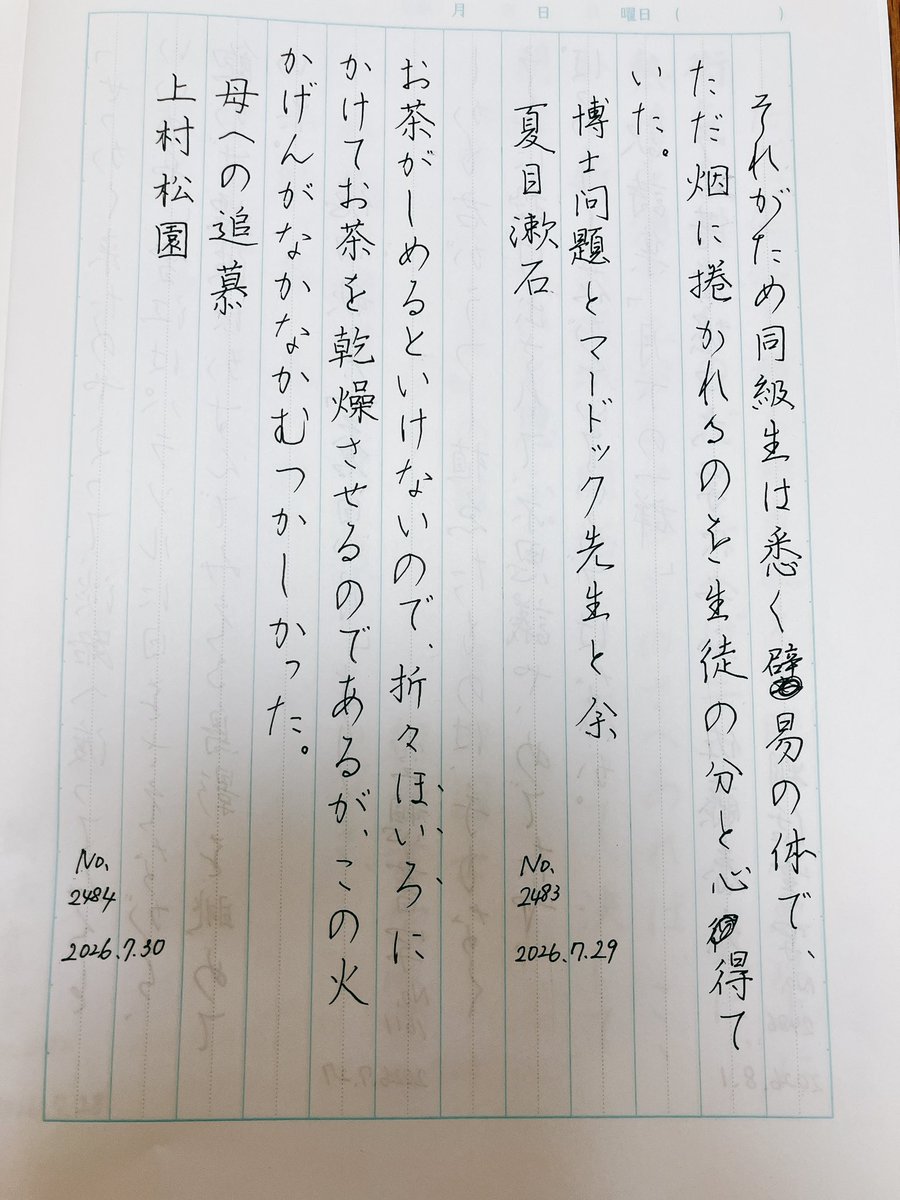 月　日　曜日（　）
それがため同級生は悉く辟易の体で、
ただ烟に捲かれるのを生徒の分と心得て
いた。
博士問題とマードック先生と余
夏目漱石
No.
2483
2026.7.29
お茶がしめるといけないので、折々ほいろに
かけてお茶を乾燥させるのであるが、この火
かげんがなかなかむつかしかった。
母への追慕
上村松園
No.
2484
2026.7.30